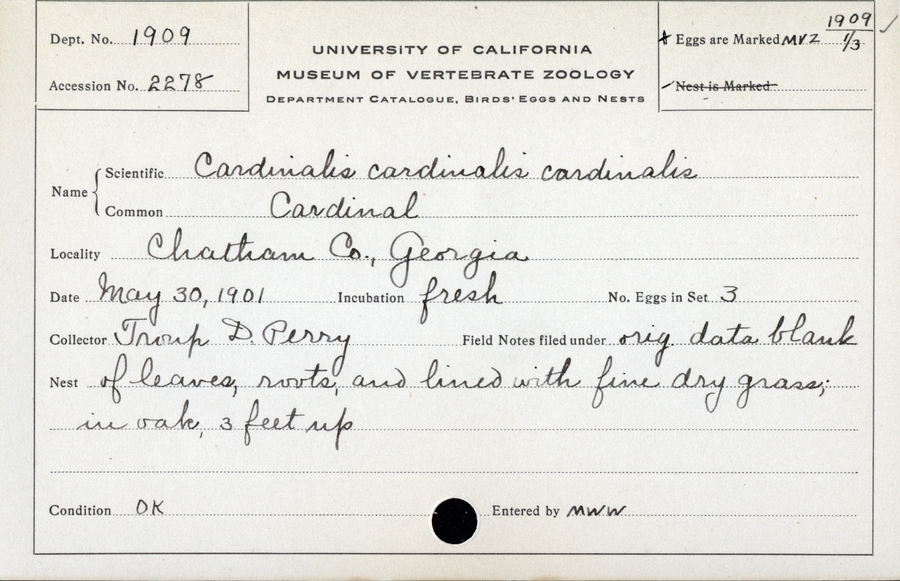 Dept. No. 1909
Accession No. 2278
UNIVERSITY OF CALIFORNIA
MUSEUM OF VERTEBRATE ZOÖLOGY
DEPARTMENT CATALOGUE, BIRDS' EGGS AND NESTS
Eggs are Marked MVZ 1909 1/3
Nest is Marked
Name
Scientific Cardinalis cardinalis cardinalis
Common Cardinal
Locality Chatham Co., Georgia
Date May 30, 1901 Incubation fresh No. Eggs in Set 3
Collector Troup D. Perry Field Notes filed under orig. data blank
Nest of leaves, roots, and lined with fine dry grass;
in oak, 3 feet up
Condition OK Entered by MWW